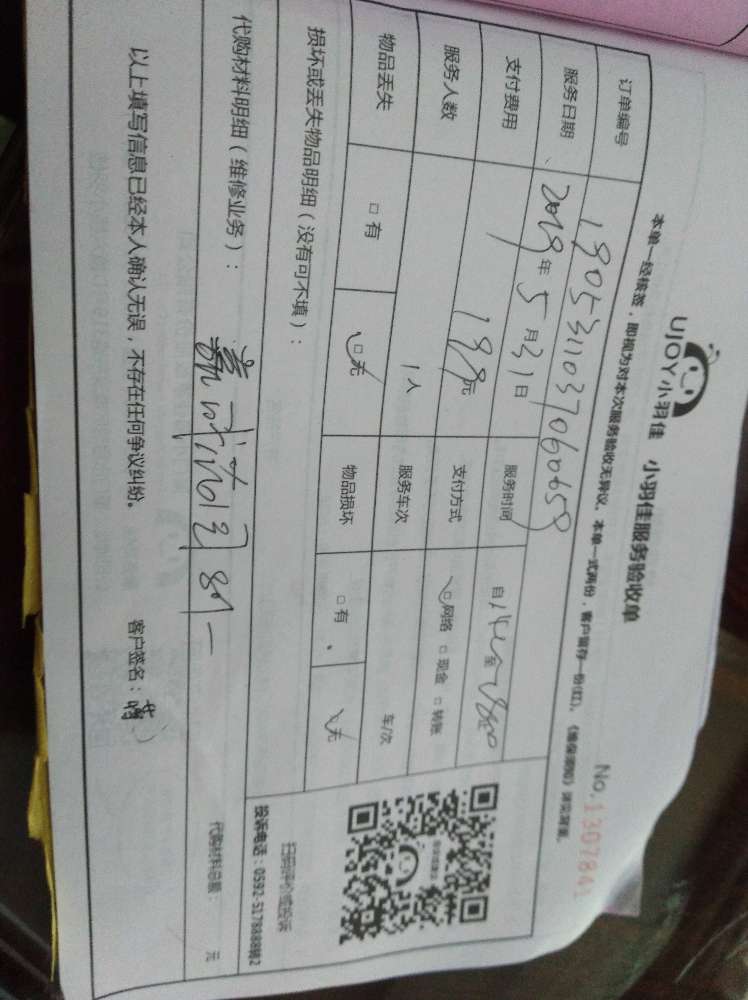 UJOY小羽佳 小羽佳服务验收单
No.1307841
本单一经核签，即视为对本次服务验收无异议。本单一式两份，客户留存一份(红)。《维保须知》详见背面。
订单编号 190531103706065 9
服务日期 2019年5月31日 服务时间 自 至
支付费用 198元 支付方式 □网络 □现金 □转账
服务人数 1人 服务车次 车/次
物品丢失 □有 □无 物品损坏 □有 □无
损坏或丢失物品明细（没有可不填）：
扫码评价或投诉
投诉电话：0592-5178888转2
代购材料明细（维修业务）：
代购材料总额： 元
以上填写信息已经本人确认无误，不存在任何争议纠纷。
客户签名：